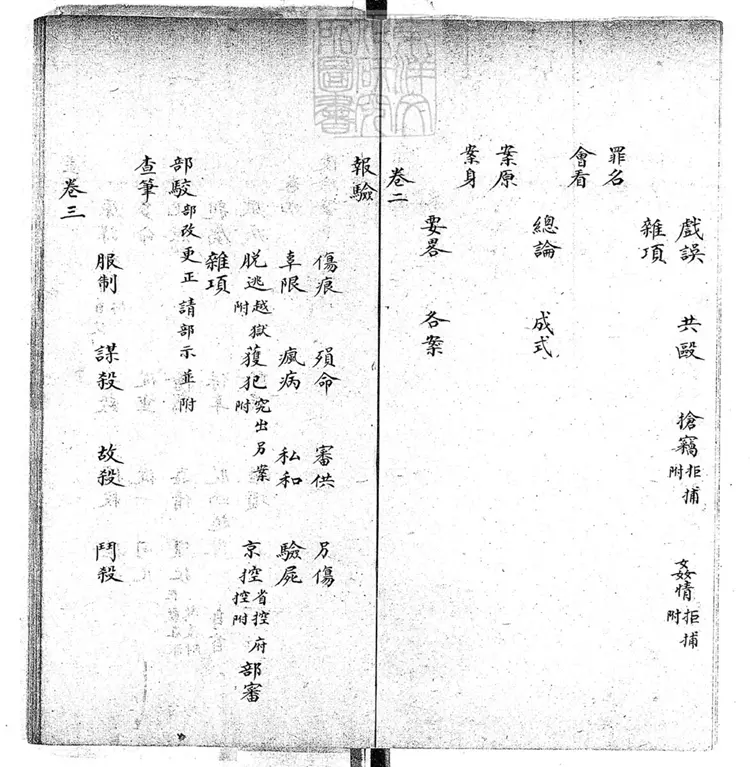 東洋文
化研究
所圖書
戲誤 共毆 搶竊拒捕附 姦情拒捕附
雜項
罪名
會看
總論 成式
案原
案身
要畧 各案
卷二
報驗
傷痕 殞命 審供 另傷
辜限 瘋病 私和 驗屍
脱逃越獄附 獲犯究出另案附 京控省控府控附 部審
雜項
部駮部改更正請部示並附
查筆
服制 謀殺 故殺 鬥殺
卷三